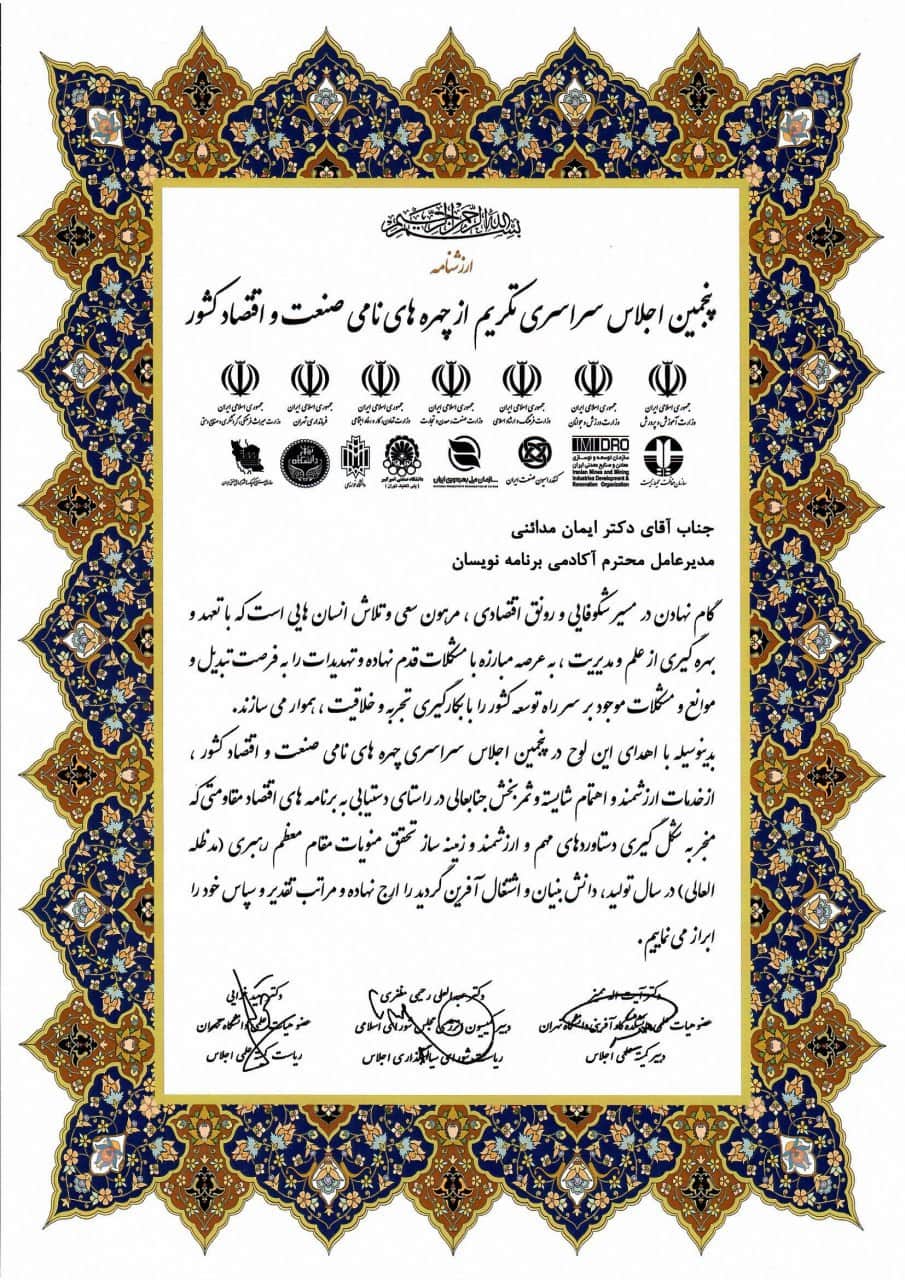 بسم الله الرحمن الرحیم
ارزشنامه
پنجمین اجلاس سراسری تکریم از چهره های نامی صنعت و اقتصاد کشور
جمهوری اسلامی ایران جمهوری اسلامی ایران جمهوری اسلامی ایران جمهوری اسلامی ایران جمهوری اسلامی ایران جمهوری اسلامی ایران جمهوری اسلامی ایران
وزارت آموزش و پرورش وزارت ورزش و جوانان وزارت فرهنگ و ارشاد اسلامی وزارت صنعت، معدن و تجارت وزارت تعاون، کار و رفاه اجتماعی فرمانداری تهران وزارت میراث فرهنگی، گردشگری و صنایع دستی
سازمان حفاظت محیط زیست
IMIDRO
سازمان توسعه و نوسازی
معادن و صنایع معدنی ایران
Iranian Mines and Mining
Industries Development &
Renovation Organization
کنفدراسیون صنعت ایران
سازمان ملی بهره‌وری ایران
دانشگاه صنعتی امیرکبیر
(پلی تکنیک تهران)
جناب آقای دکتر ایمان مدائنی
مدیرعامل محترم آکادمی برنامه نویسان
گام نهادن در مسیر شکوفایی و رونق اقتصادی ، مرهون سعی و تلاش انسان هایی است که با تعهد و
بهره گیری از علم و مدیریت ، به عرصه مبارزه با مشکلات قدم نهاده و تهدیدات را به فرصت تبدیل و
موانع و مشکلات موجود بر سر راه توسعه کشور را با بکارگیری تجربه و خلاقیت ، هموار می سازند.
بدینوسیله با اهدای این لوح در پنجمین اجلاس سراسری چهره های نامی صنعت و اقتصاد کشور ،
از خدمات ارزشمند و اهتمام شایسته و ثمربخش جنابعالی در راستای دستیابی به برنامه های اقتصاد مقاومتی که
منجر به شکل گیری دستاوردهای مهم و ارزشمند و زمینه ساز تحقق منویات مقام معظم رهبری (مدظله
العالی) در سال تولید، دانش بنیان و اشتغال آفرین گردید را ارج نهاده و مراتب تقدیر و سپاس خود را
ابراز می نماییم .
دکتر عبدالعلی رحیمی مظفری
دبیر کمیسیون انرژی مجلس شورای اسلامی
ریاست شورای سیاستگذاری اجلاس
عضو هیات علمی دانشکده کارآفرینی دانشگاه تهران
دبیر کمیته علمی اجلاس
عضو هیات علمی دانشگاه تهران
ریاست کمیته علمی اجلاس